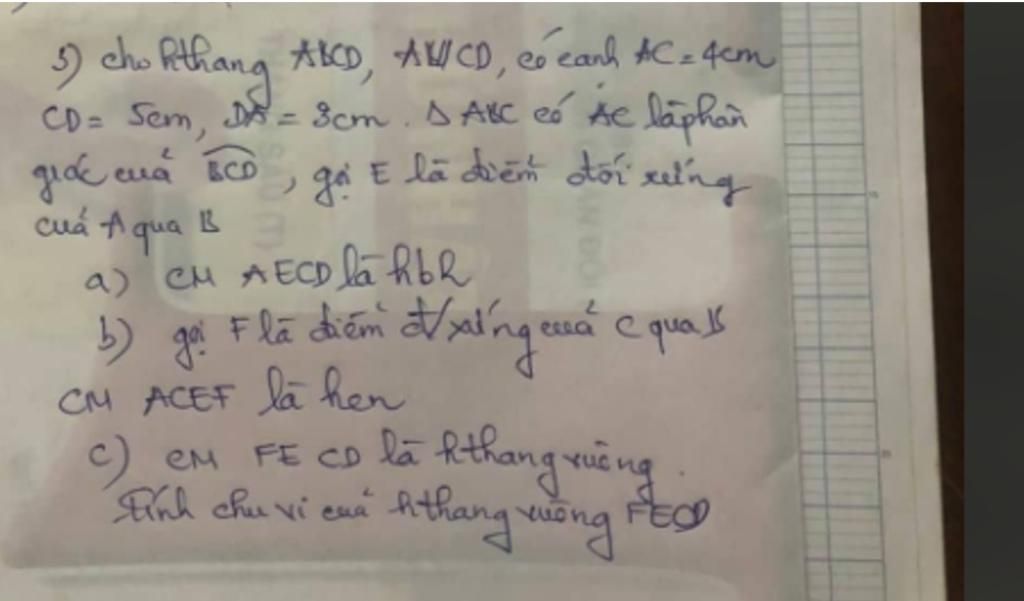 5) cho hthang ABCD, AB//CD, có cạnh AC = 4cm
CD = 5cm, DA = 3cm. Δ ABC có AC là phân
giác của BCD, gọi E là điểm đối xứng
của A qua B
a) CM AECD là hbh
b) gọi F là điểm đ/xứng của C qua B
CM ACEF là hcn
c) CM FECD là hthang vuông.
Tính chu vi của hthang vuông FECD